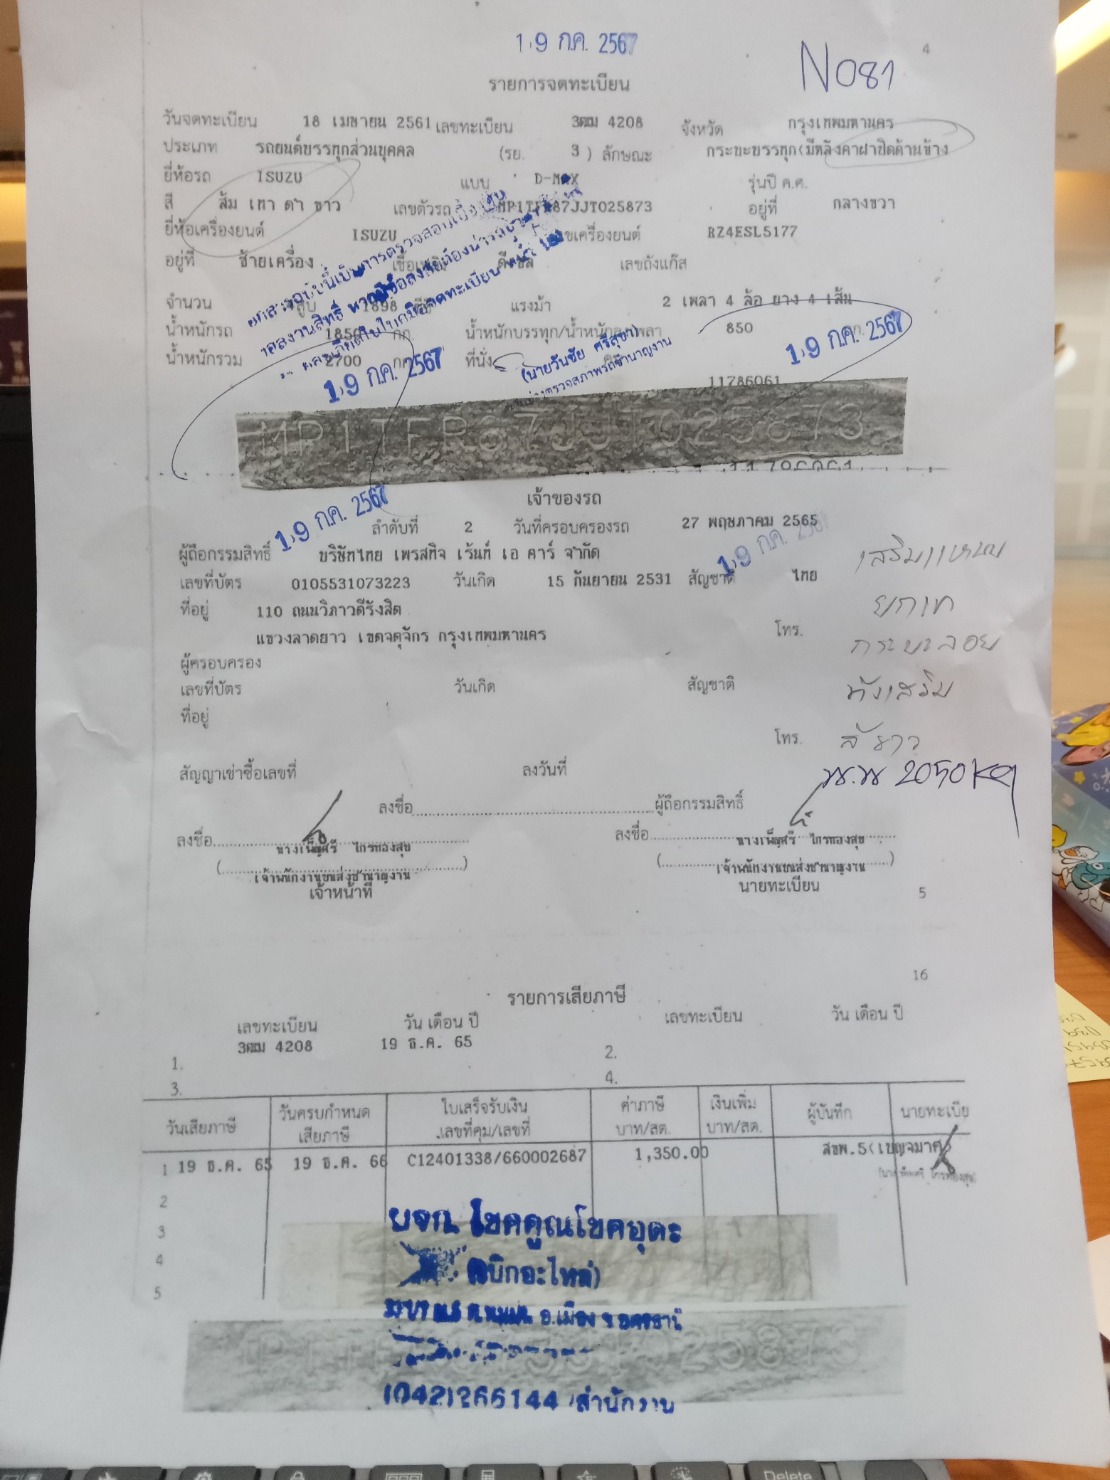 19 กค. 2567
4
N081
รายการจดทะเบียน
วันจดทะเบียน 18 เมษายน 2561 เลขทะเบียน 3ฒฌ 4208 จังหวัด กรุงเทพมหานคร
ประเภท รถยนต์บรรทุกส่วนบุคคล (รย. 3 ) ลักษณะ กระบะบรรทุก(มีหลังคาฝาปิดด้านข้าง
ยี่ห้อรถ ISUZU แบบ D-MAX รุ่นปี ค.ศ.
สี ส้ม เทา ดำ ขาว เลขตัวรถ MP1TFR87JJT025873 อยู่ที่ กลางขวา
ยี่ห้อเครื่องยนต์ ISUZU เลขเครื่องยนต์ RZ4ESL5177
อยู่ที่ ซ้ายเครื่อง เชื้อเพลิง ดีเซล เลขถังแก๊ส
จำนวน สูบ 1898 ซีซี แรงม้า 2 เพลา 4 ล้อ ยาง 4 เส้น
น้ำหนักรถ 1850 กก. น้ำหนักบรรทุก/น้ำหนักลงเพลา 850 กก.
น้ำหนักรวม 2700 กก. ที่นั่ง
(นายวันชัย ศรีสุขา)
19 กค. 2567
19 กค. 2567
11786061
MP1TFR87JJT025873
11786061
เจ้าของรถ
19 กค. 2567
ลำดับที่ 2 วันที่ครอบครองรถ 27 พฤษภาคม 2565
ผู้ถือกรรมสิทธิ์ บริษัทไทย เพรสทิจ เร้นท์ เอ คาร์ จำกัด
19 กค. 2567
เลขที่บัตร 0105531073223 วันเกิด 15 กันยายน 2531 สัญชาติ ไทย
เสริมแหนบ
ที่อยู่ 110 ถนนวิภาวดีรังสิต
ยกเท
แขวงลาดยาว เขตจตุจักร กรุงเทพมหานคร โทร.
กระบะลอย
ผู้ครอบครอง
เลขที่บัตร วันเกิด สัญชาติ
คังเสริม
ที่อยู่
โทร.
สีขาว
สัญญาเช่าซื้อเลขที่ ลงวันที่
นน. 2050 kg
ลงชื่อ ผู้ถือกรรมสิทธิ์
ลงชื่อ นางเพ็ญศรี ไกรทองสุข ลงชื่อ นางเพ็ญศรี ไกรทองสุข
(เจ้าพนักงานขนส่งชำนาญงาน) (เจ้าพนักงานขนส่งชำนาญงาน)
เจ้าหน้าที่ นายทะเบียน
5
16
รายการเสียภาษี
เลขทะเบียน วัน เดือน ปี เลขทะเบียน วัน เดือน ปี
1. 3ฒฌ 4208 19 ธ.ค. 65 2.
3. 4.
วันเสียภาษี วันครบกำหนดเสียภาษี ใบเสร็จรับเงิน เลขที่คุม/เลขที่ ค่าภาษี บาท/สต. เงินเพิ่ม บาท/สต. ผู้บันทึก นายทะเบีย
1 19 ธ.ค. 65 19 ธ.ค. 66 C12401338/660002687 1,350.00 สขพ.5(เบญจมาศ)
2
3
4
5
บจก. โชคคูณโชคอุดร
(อะไหล่)
อ.เมือง จ.อุดรธานี
(042)266144 สำนักงาน